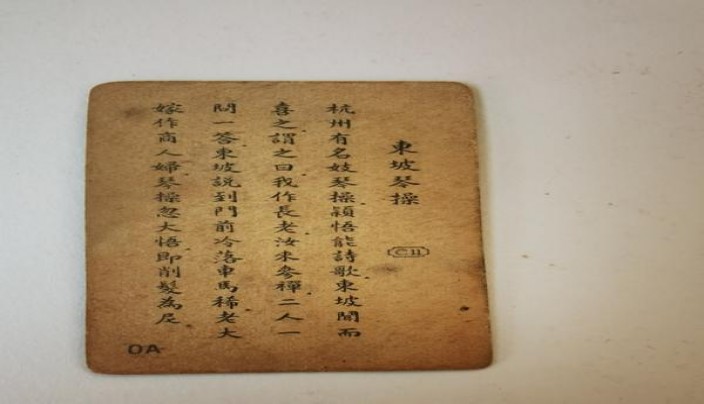 東坡琴操
C11
杭州有名妓琴操穎悟能詩歌東坡聞而
喜之謂之曰我作長老汝來參禪二人一
問一答東坡說到門前冷落車馬稀老大
嫁作商人婦琴操忽大悟即削髮為尼
OA